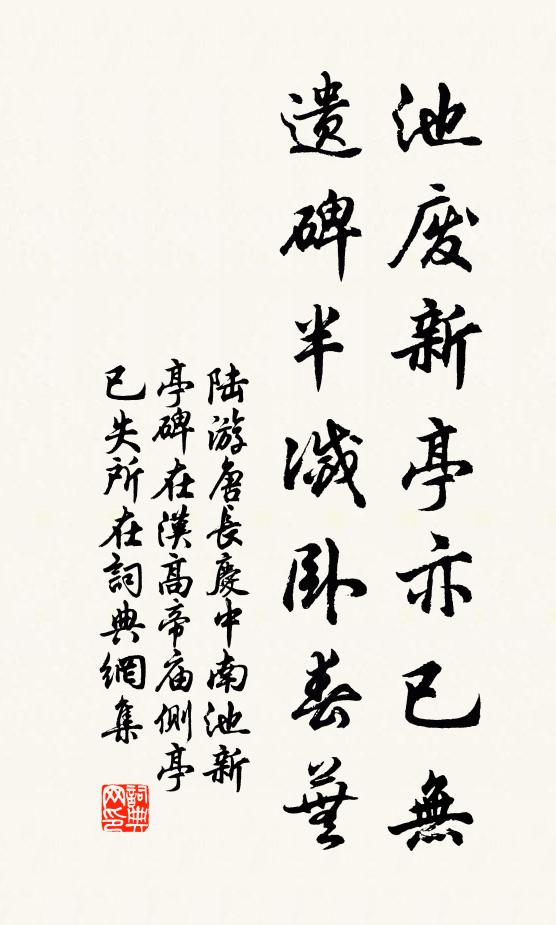 池廢新亭亦已無
遺碑半滅臥春蕪
陆游唐長慶中南池新
亭碑在漢高帝庙側亭
已失所在詞典網集
詞典网印